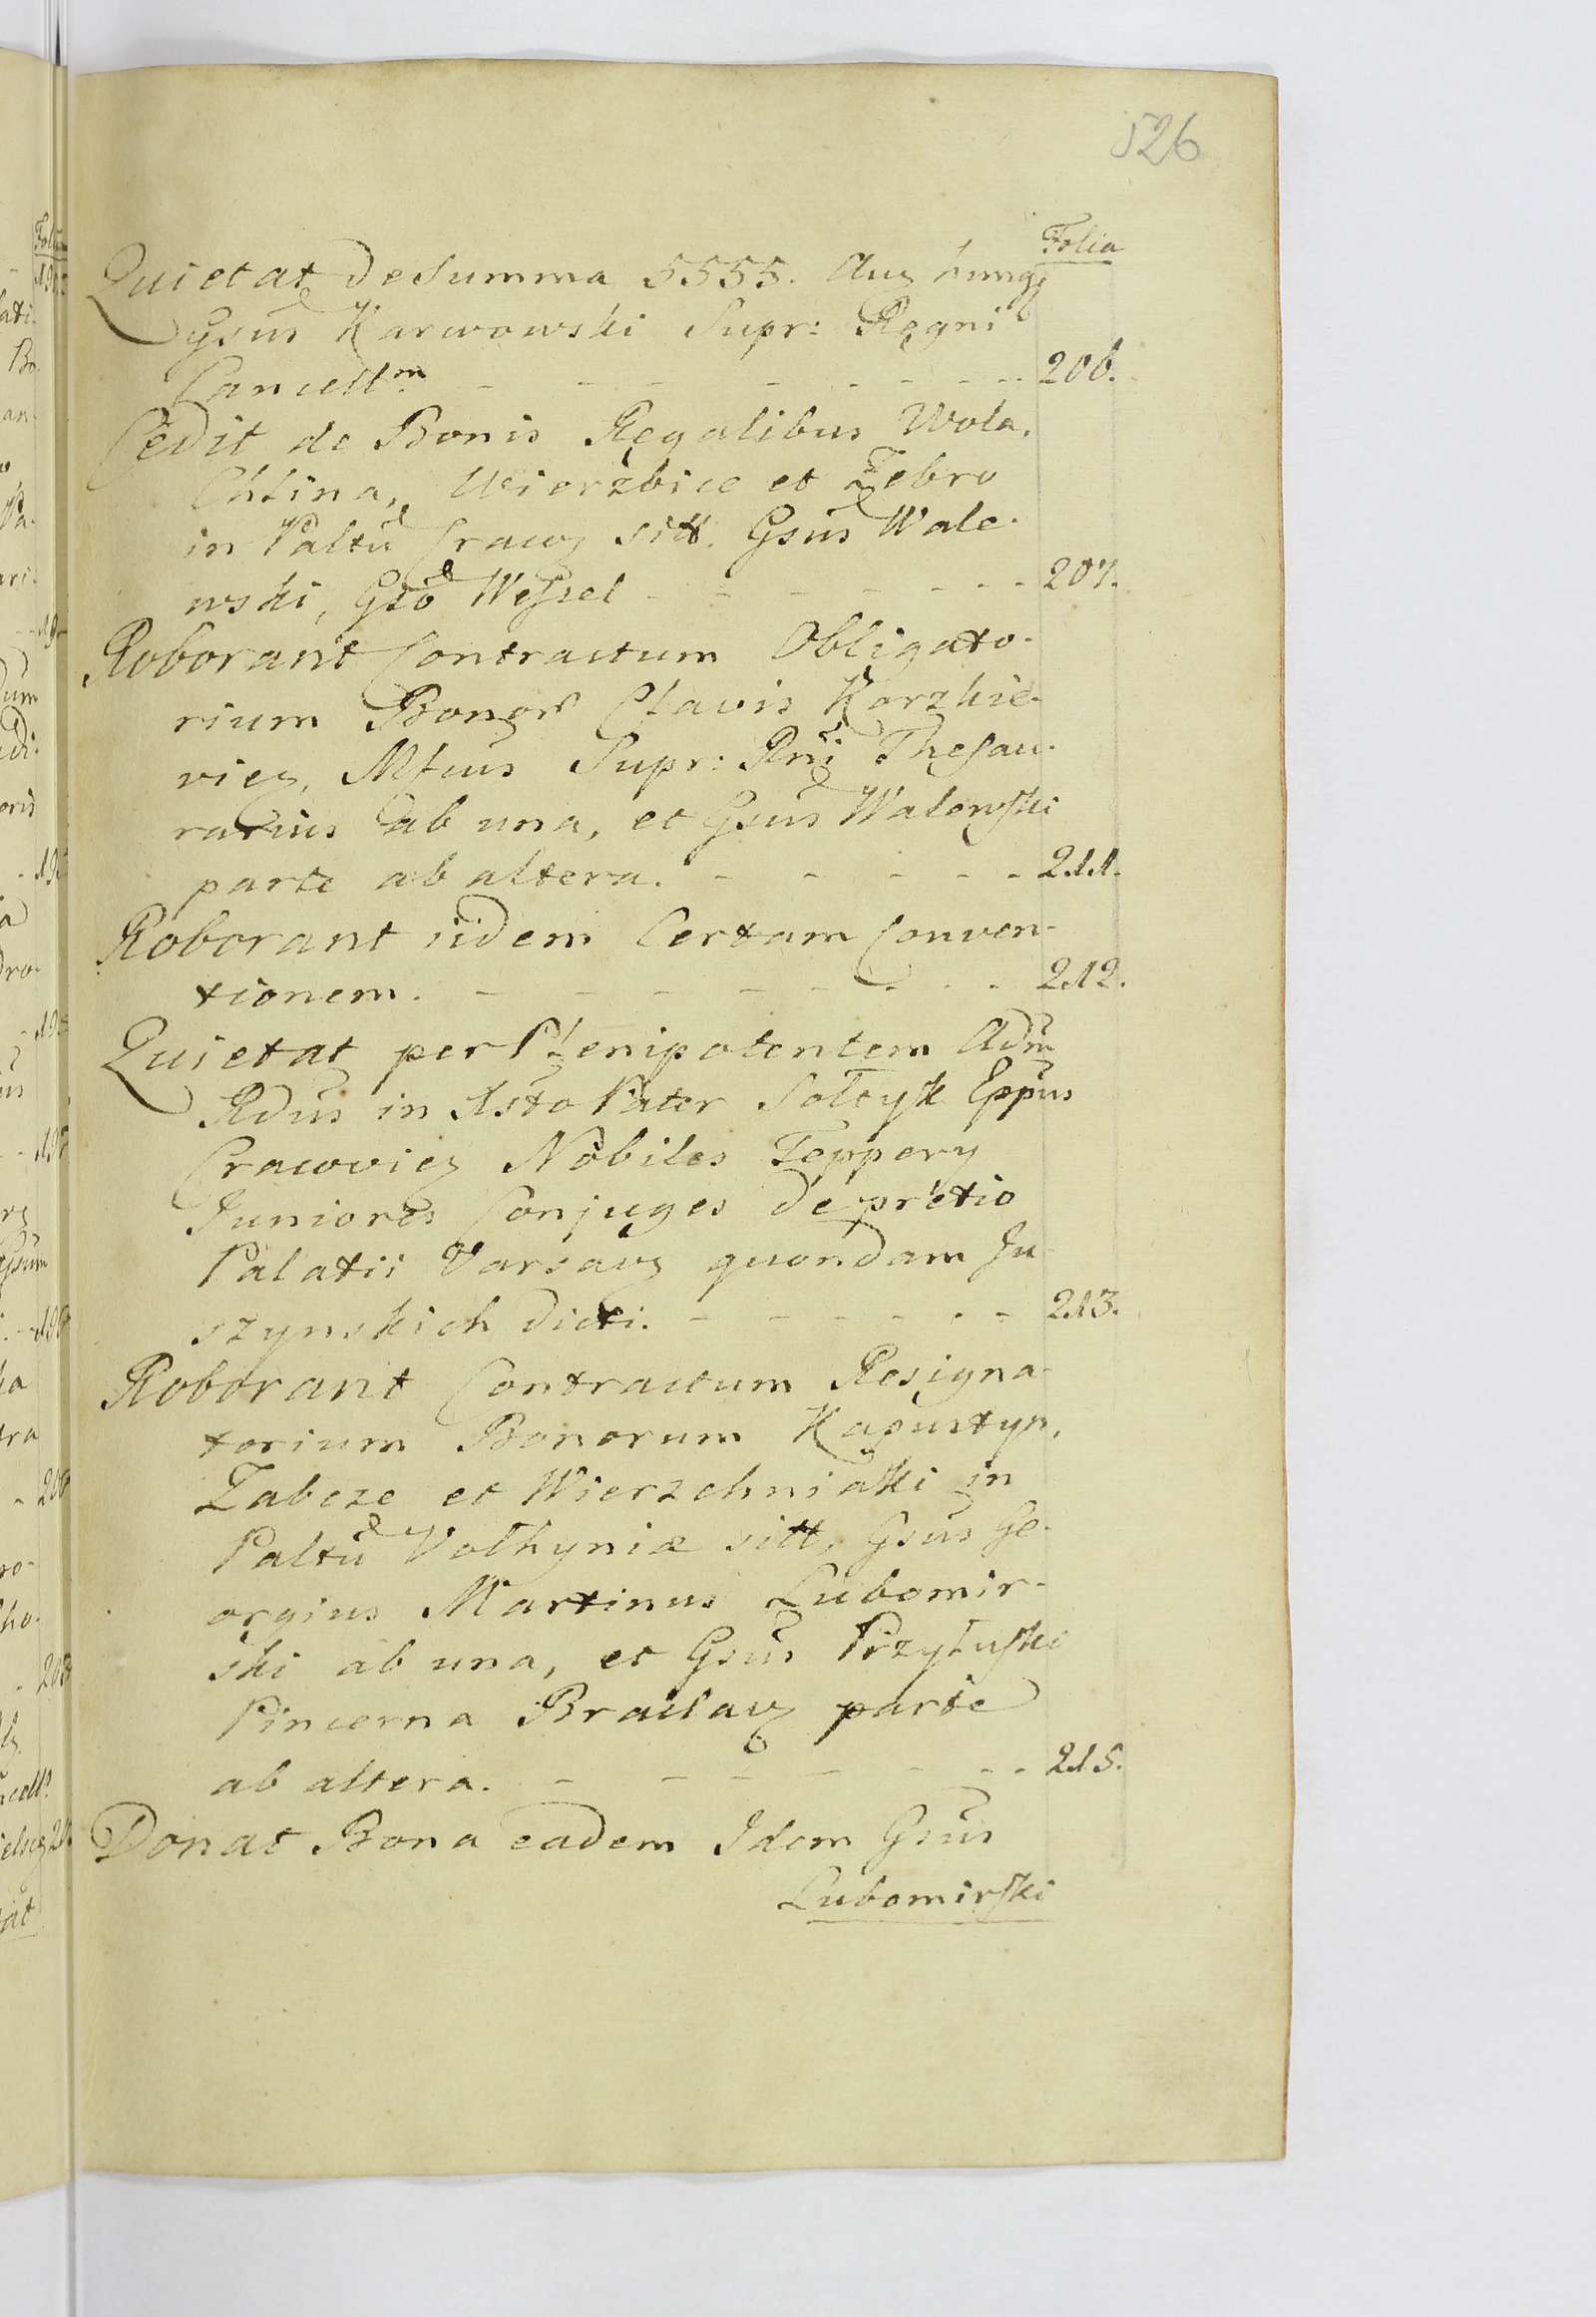 526
Folia
Quietat de Summa 5555. Aur hung
Gsus Karwowski Supr: Regni
Cancellm - - - - - - - 206.
Cedit de Bonis Regalibus Wola,
Chlina, Wierzbice et Zebro
in Paltu Cracov sitt. Gsus Wale-
wski, Gso Wessel - - - - - - 207.
Roborant Contractum Obligato-
rium Bonor Clavis Korzkie-
vien, Mfcus Supr: Rni Thesau-
rarius ab una, et Gsus Walewski
parte ab altera. - - - - - 211.
Roborant iidem Certam Conven-
tionem. - - - - - - - - 212.
Quietat per Plenipotentem Adm
Rdus in Xsto Pater Sołtyk Eppus
Cracovien Nobiles Teppery
Juniores Conjuges de pretio
Palatii Varsav quondam Ju-
szynskich dicti. - - - - - - 213.
Roborant Contractum Resigna-
torium Bonorum Kapustyn,
Zabcze et Wierzchniaki in
Paltu Volhyniæ sitt, Gsus Ge-
orgius Martinus Lubomir-
ski ab una, et Gsus Przyłuski
Pincerna Braclav parte
ab altera. - - - - - - - 215.
Donat Bona eadem Idem Gsus
Lubomirski